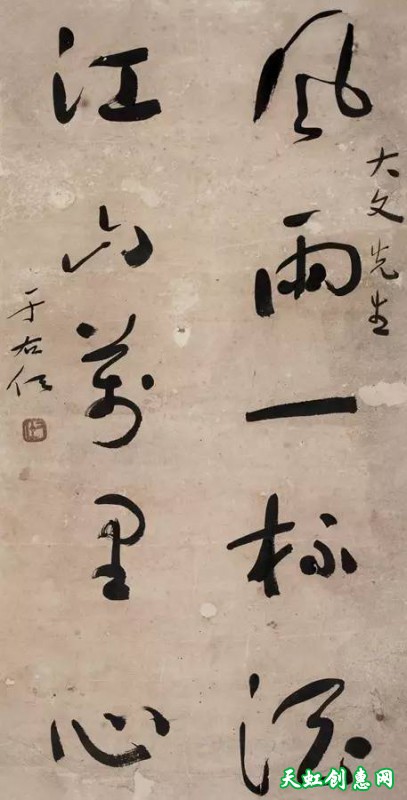 大文先生
風雨一杯酒
江山萬里心
于右任
天虹创惠网